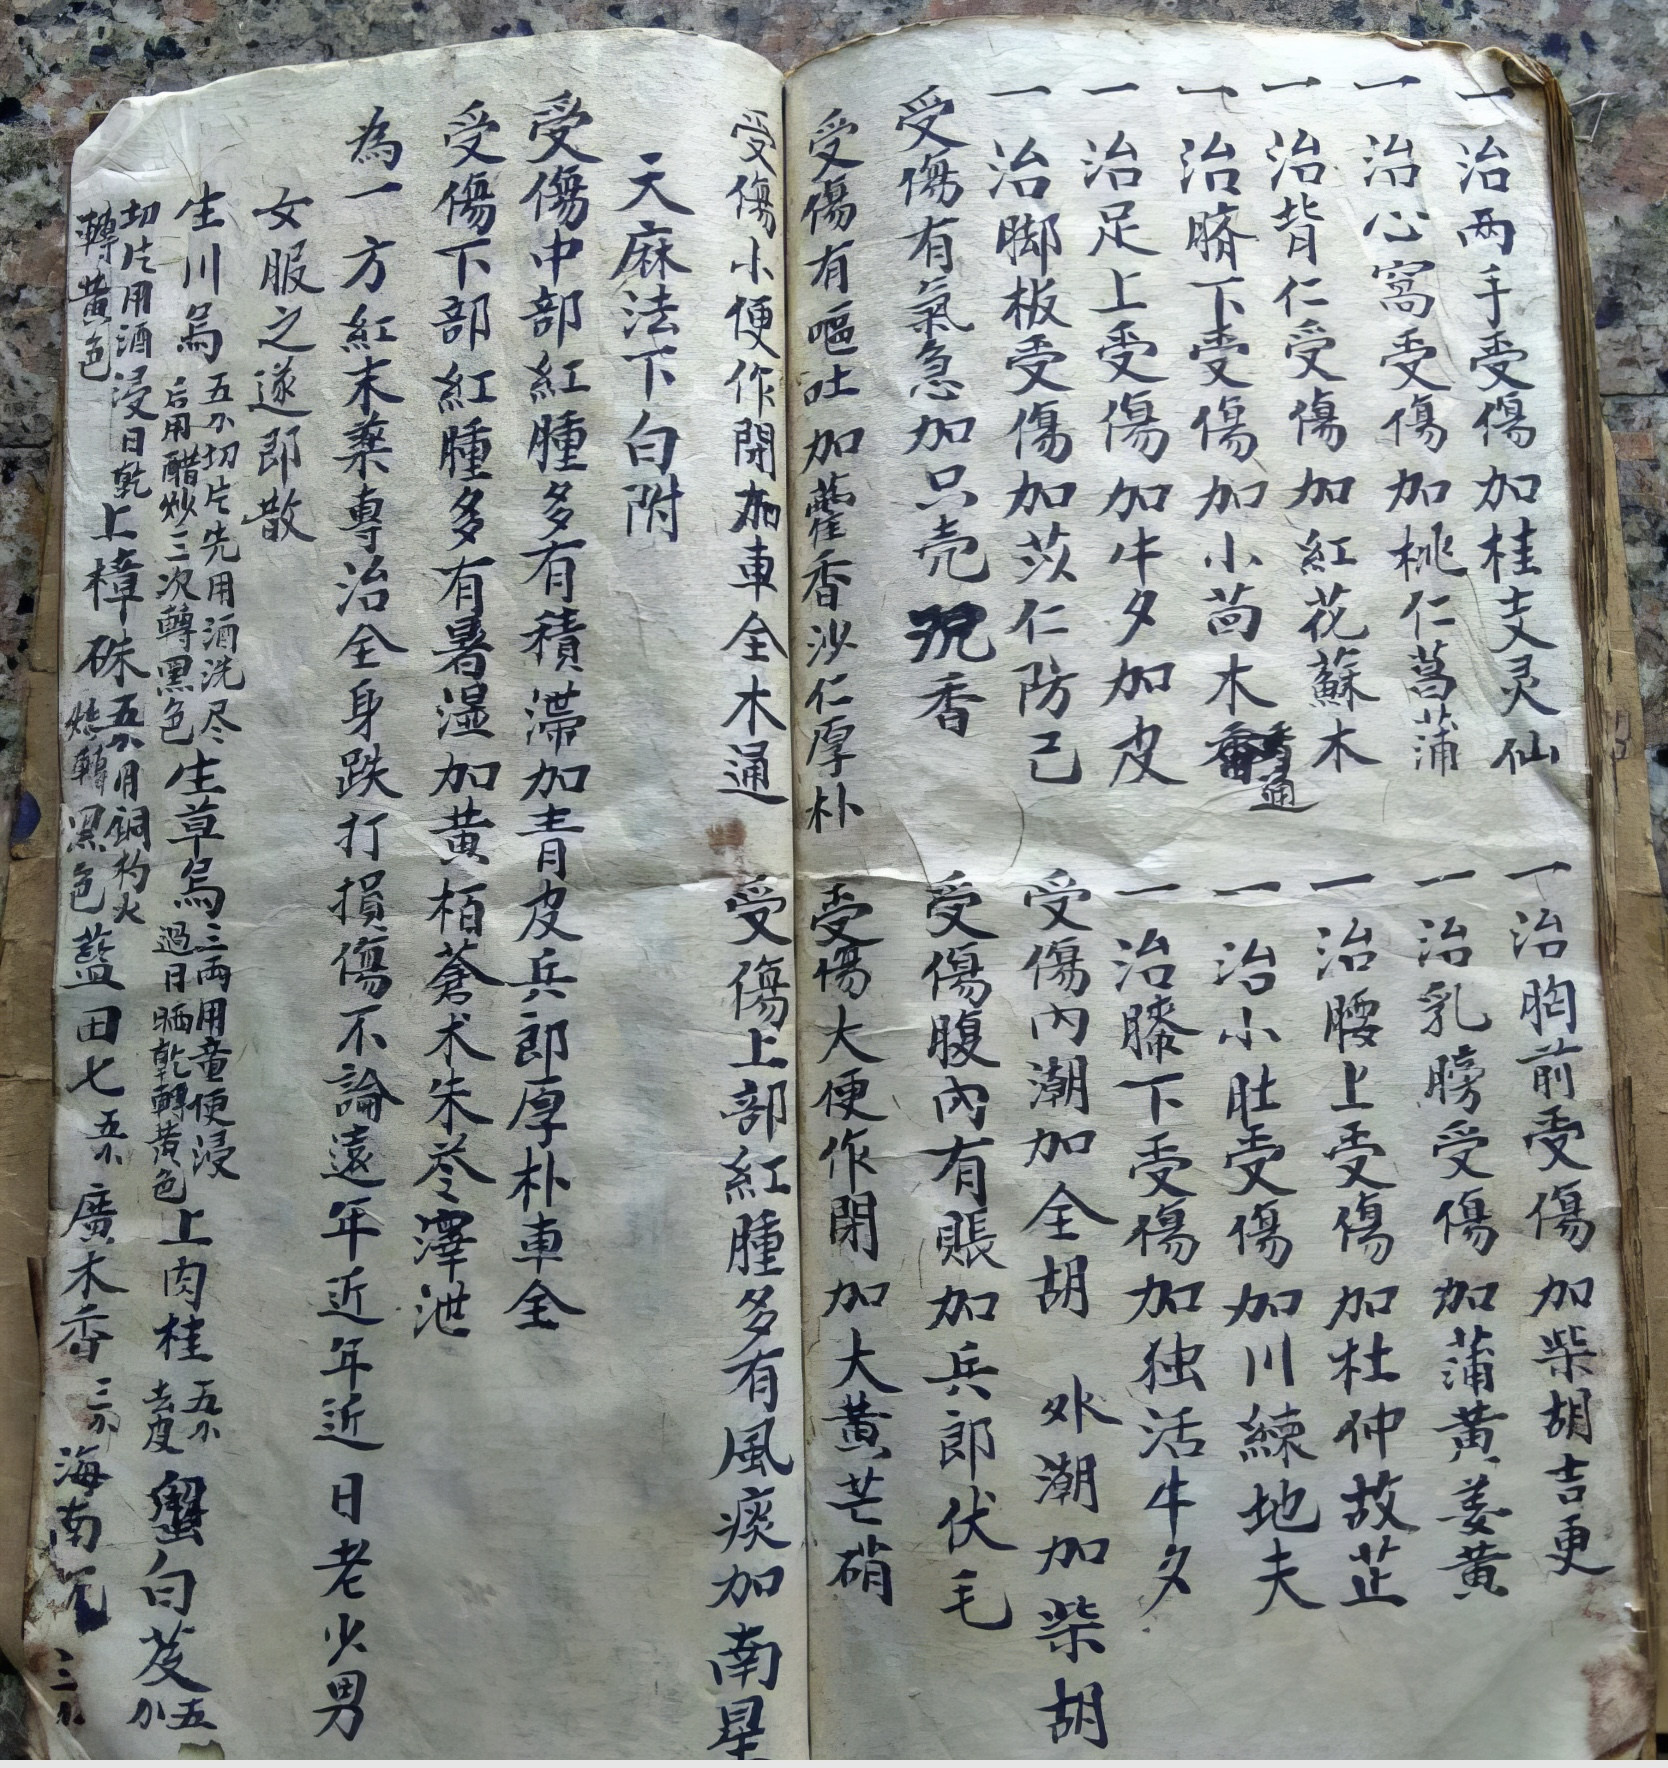 一治两手受傷加桂支灵仙
一治胸前受傷加柴胡吉更
一治心窩受傷加桃仁菖蒲
一治乳膀受傷加蒲黄姜黄
一治背仁受傷加紅花蘇木
一治腰上受傷加杜仲故芷
一治臍下受傷加小茴木香通
一治小肚受傷加川練地夫
一治足上受傷加牛夕加皮
一治膝下受傷加独活牛夕
一治脚板受傷加苡仁防己
受傷內潮加全胡 外潮加柴胡
受傷有氣急加只壳沉香
受傷腹內有賬加兵郎伏毛
受傷有嘔吐加藿香沙仁厚朴
受傷大便作閉加大黄芒硝
受傷小便作閉加車全木通
受傷上部紅腫多有風痰加南星
天麻法下白附
受傷中部紅腫多有積滯加青皮兵郎厚朴車全
受傷下部紅腫多有暑濕加黄栢蒼术朱苓澤泄
為一方紅末藥專治全身跌打損傷不論遠年近年近日老少男
女服之遂即散
生川烏五不切片先用酒洗尽后用醋炒三次轉黑色生草烏三两用童便浸過日晒乾轉黄色上肉桂五不去皮蟹白芨五不
切片用酒浸日乾轉黄色上樟硃五不用銅杓火炒轉黑色藍田七五不廣木香三不海南三不